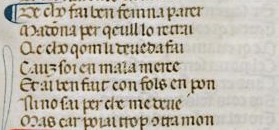 De cho fai ben femna parer
Ma dona per qeull lo retrai
Qe cho qom li deueda fai
Cauz soi en mala merce
Et ai ben fait con fols en pon
Ni no sai per che me deue
Mas car poiai trop ctra mon